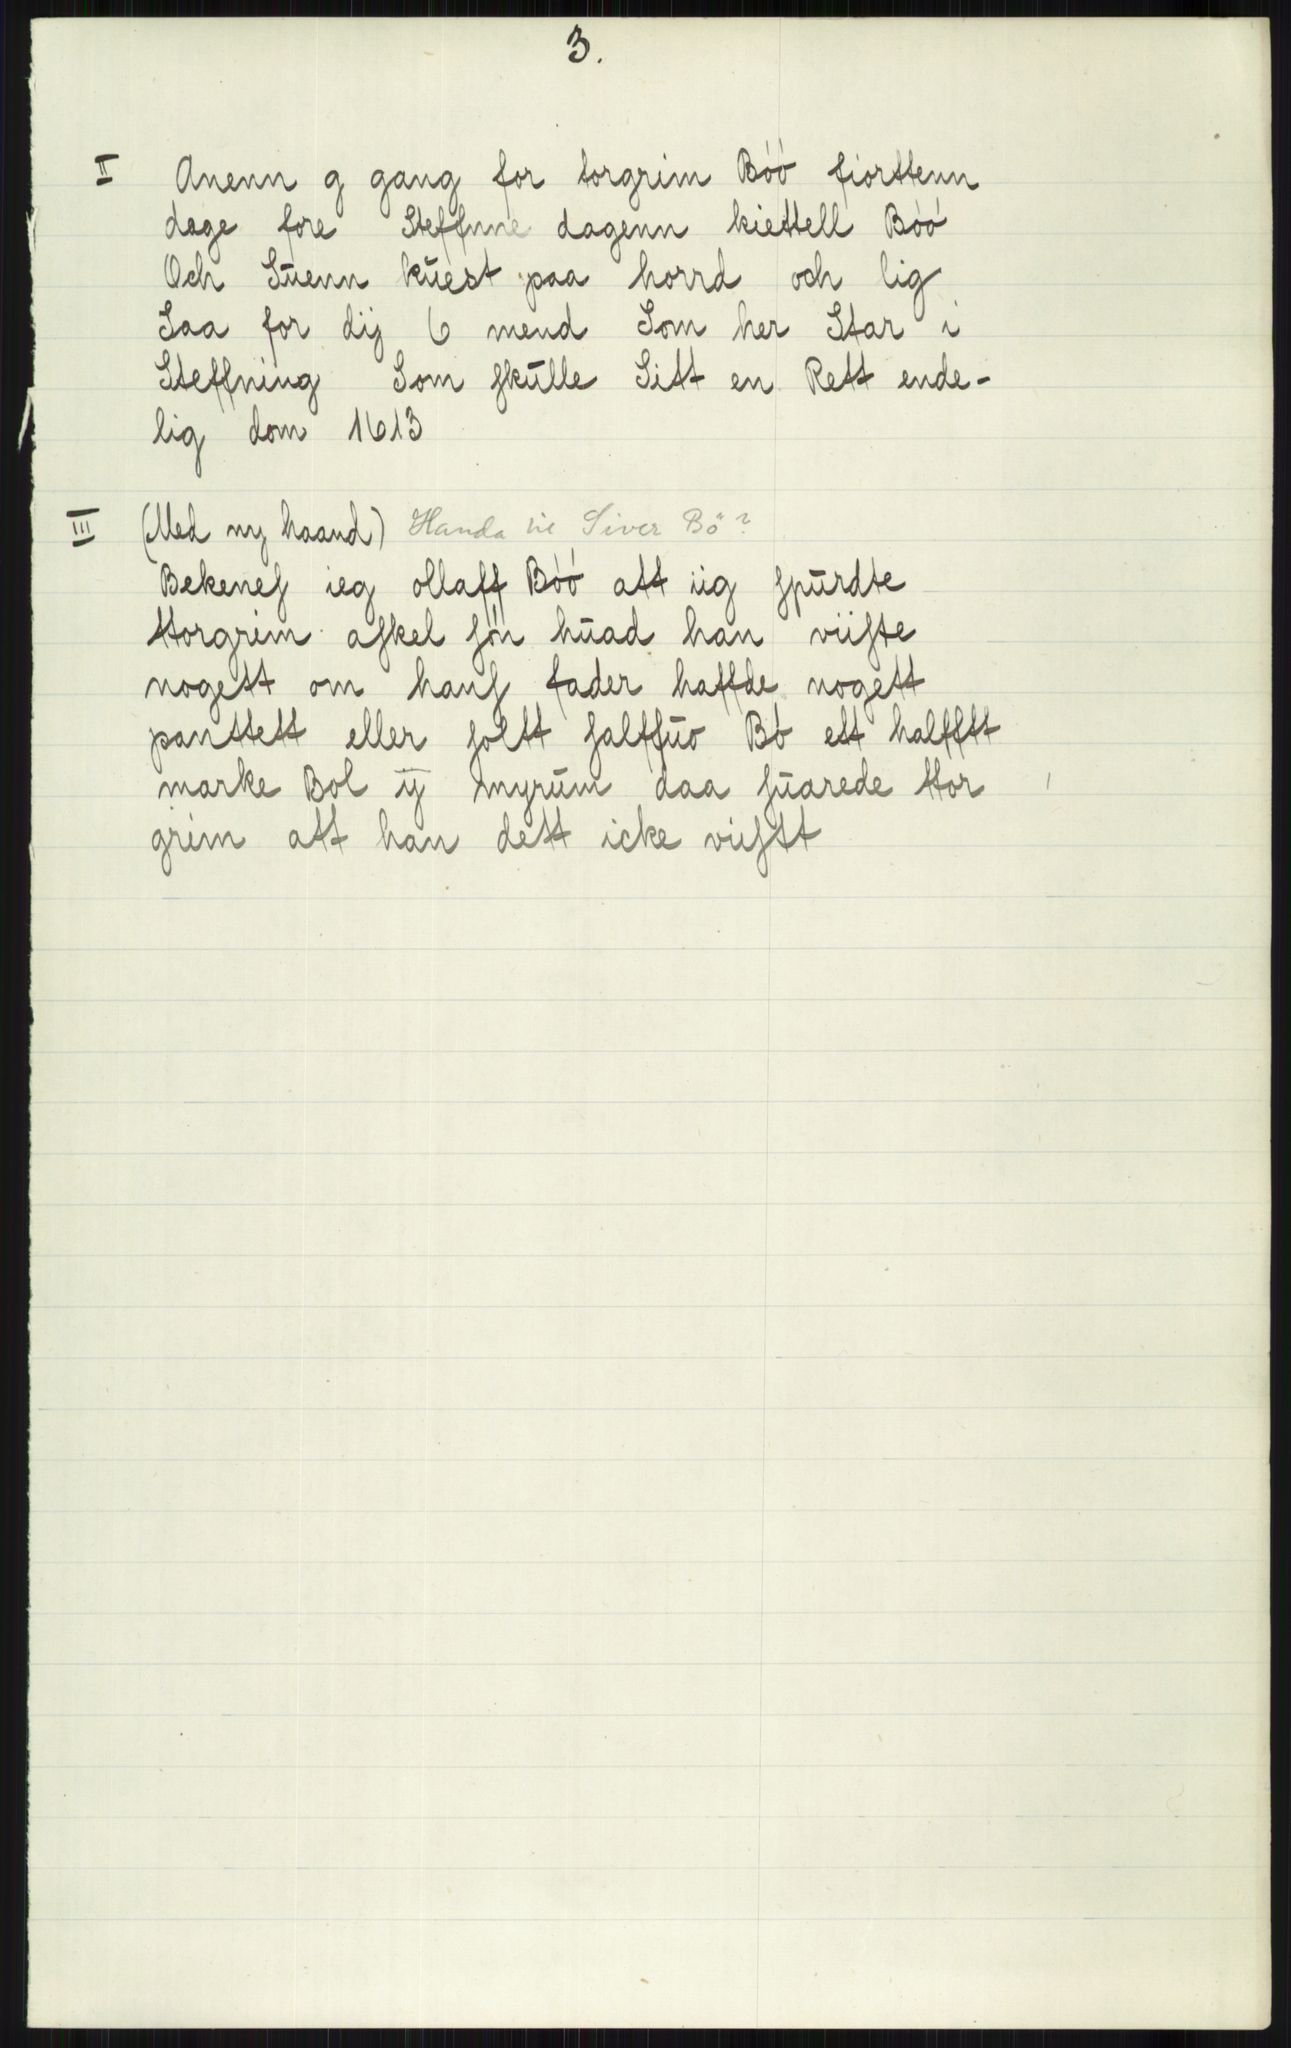 3.
II Anenn g gang for torgrim Bóó fiorttenn
dage fore Steffnne dagenn kiettell Bóó
Och Suenn kuest paa horrd och lig
Saa for dij 6 mend Som her Star i
Steffning Som skulle Sitt en Rett ende-
lig dom 1613
III (Med ny haand) Handa Siver Bö?
Bekenes ieg ollaff Bóó att iig spurdte
ttorgrim askel són huad han viiste
nogett om hans fader haffde nogett
panttett eller soltt salffuo Bó ett halfftt
marke Bol ij myrum daa suarede ttor
grim att han dett icke viistt